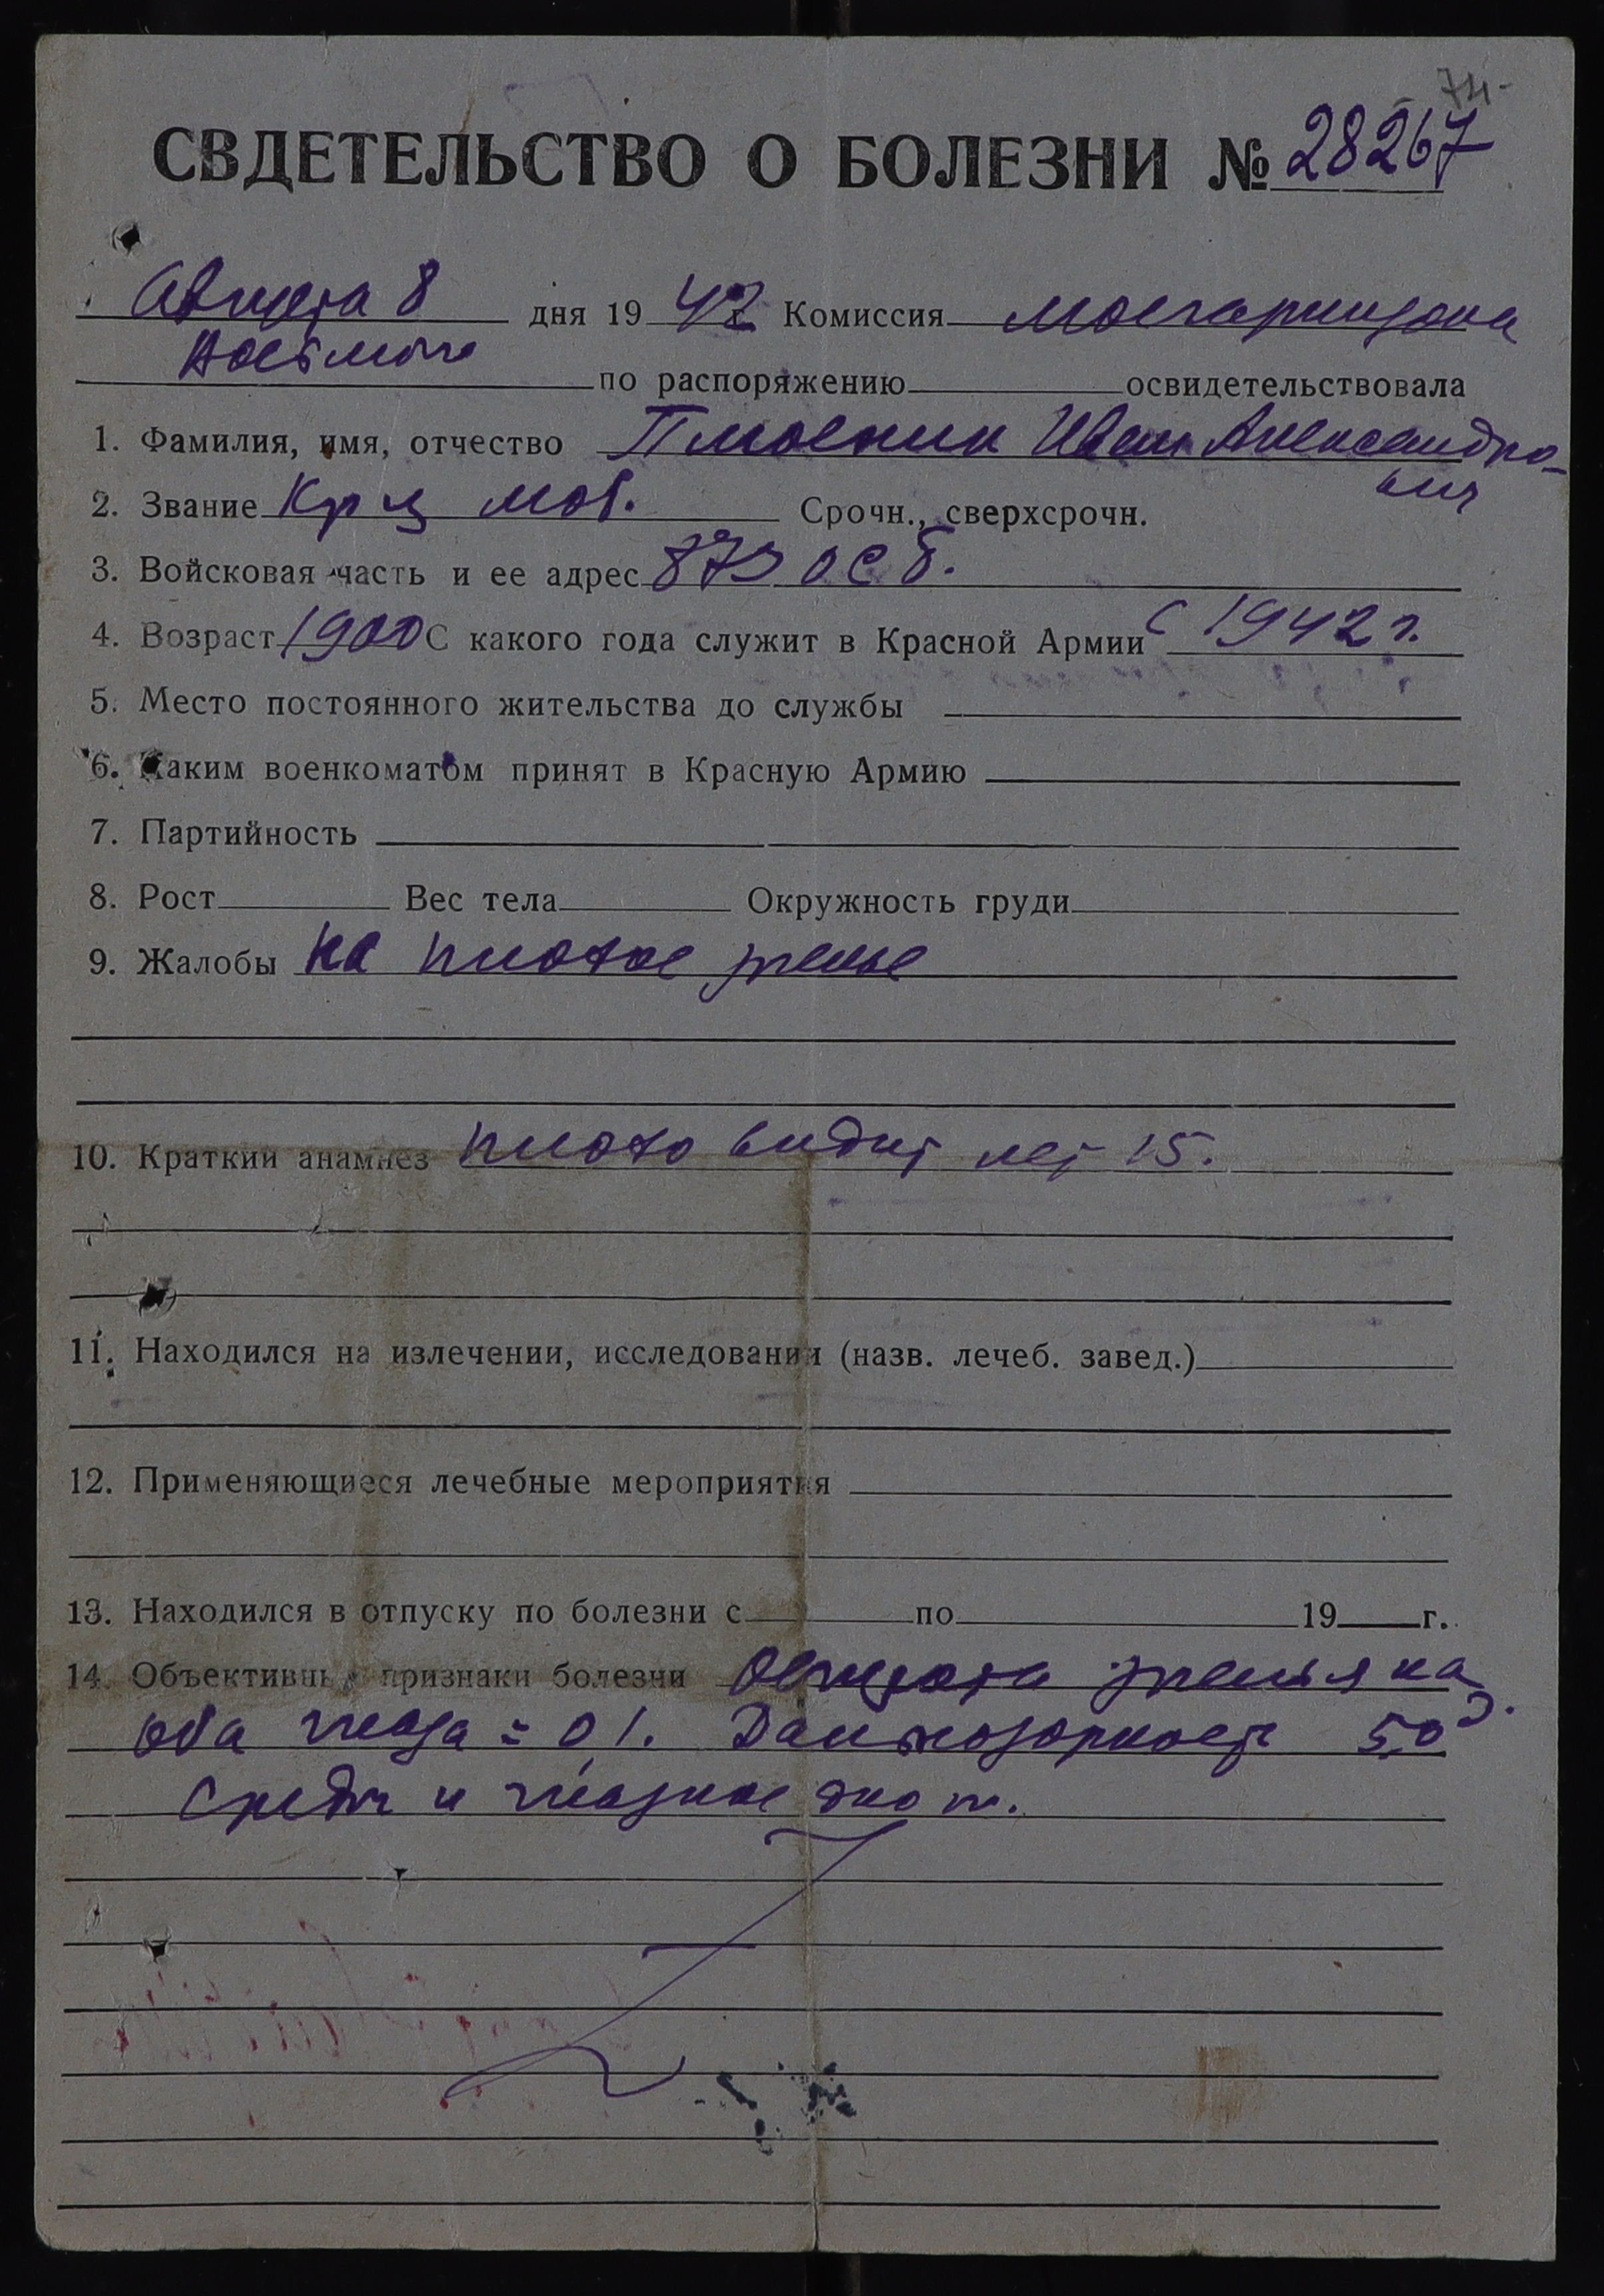 74-
СВДЕТЕЛЬСТВО О БОЛЕЗНИ № 28267
Августа 8 дня 1942 г. Комиссия Мосгарнизона
по распоряжению освидетельствовала
1. Фамилия, имя, отчество Иван Александро-
вич
2. Звание Кр-ц моб. Срочн., сверхсрочн.
3. Войсковая часть и ее адрес 873 ОСБ.
4. Возраст 1900 С какого года служит в Красной Армии с 1942 г.
5. Место постоянного жительства до службы
6. Каким военкоматом принят в Красную Армию
7. Партийность
8. Рост Вес тела Окружность груди
9. Жалобы на плохое зренье
10. Краткий анамнез плохо видит лет 15.
11. Находился на излечении, исследовании (назв. лечеб. завед.)
12. Применяющиеся лечебные мероприятия
13. Находился в отпуску по болезни с по 19 г.
14. Объективные признаки болезни Острота зренья на
оба глаза = 0,1. Дальнозоркость 5,0 D.
Среды и глазное дно N.